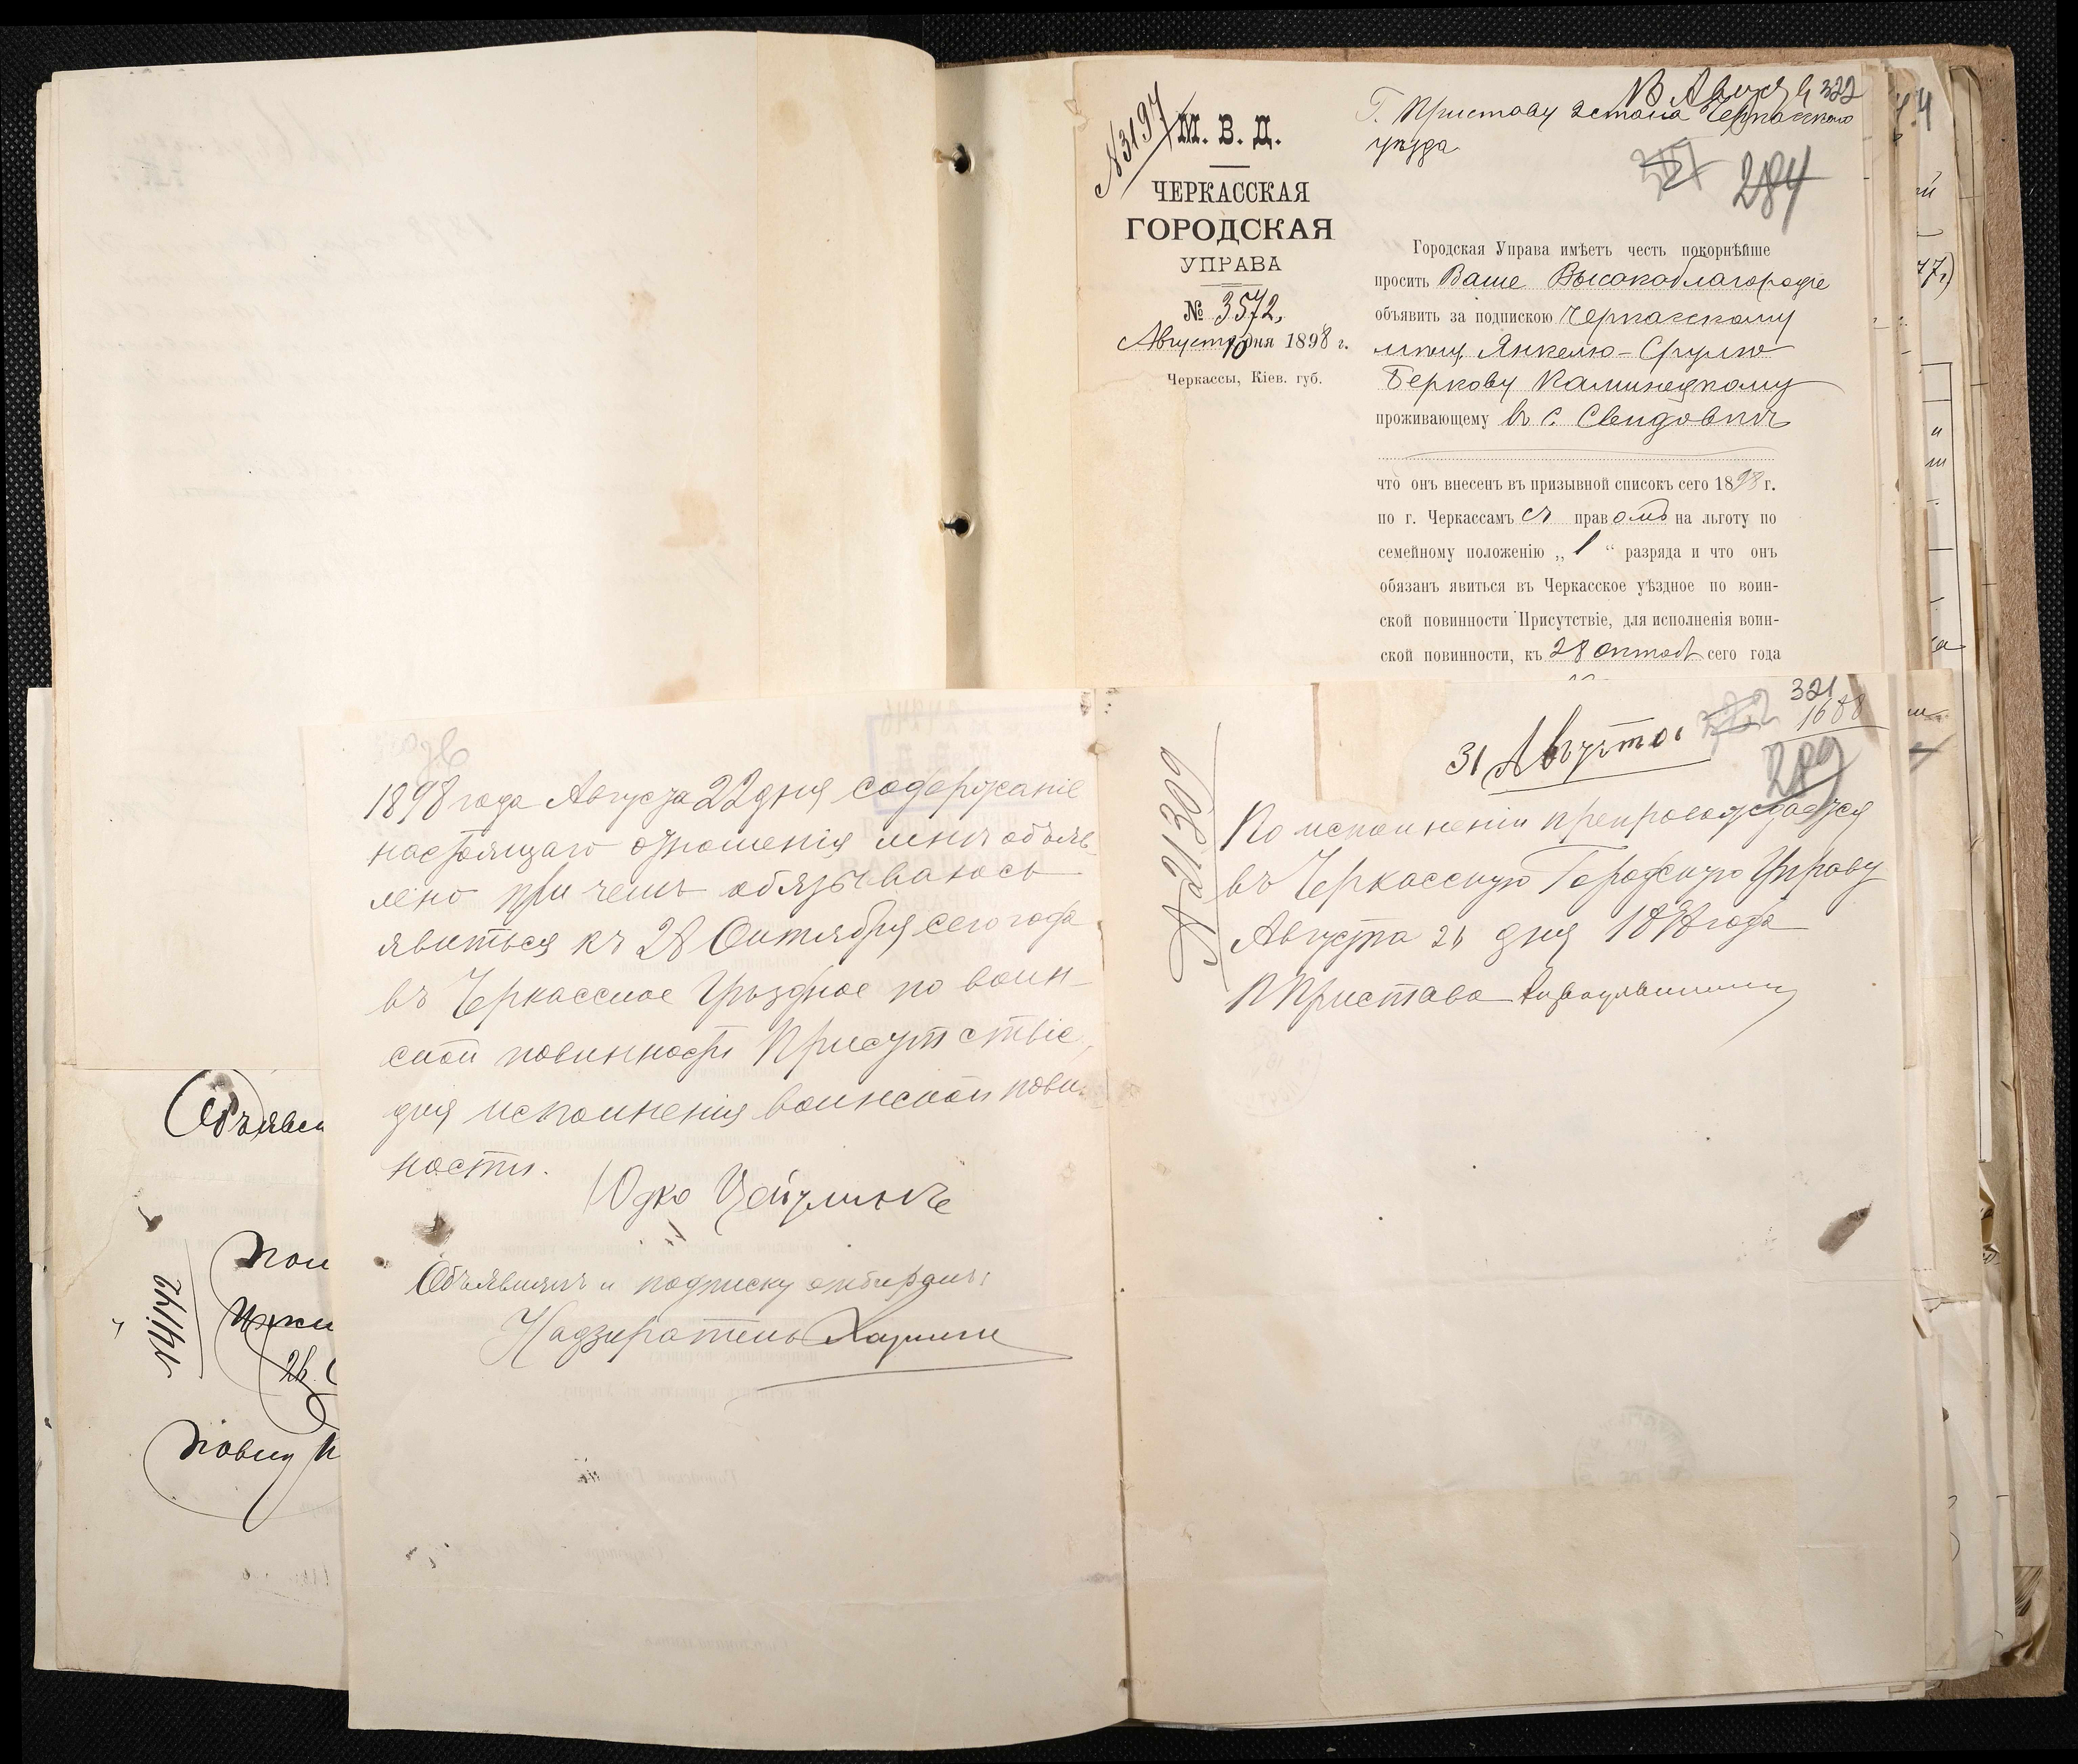 №3197
М. В. Д.
ЧЕРКАССКАЯ
ГОРОДСКАЯ
УПРАВА
№ 3572,
Августа 10 дня 1898 г.
Черкассы, Кіев. губ.
322
Г. Приставу 2 стана Черкасскаго
уѣзда
284
Городская Управа имѣетъ честь покорнѣйше
просить Ваше Высокоблагородіе
объявить за подпискою Черкасскому
мѣщ. Янкелю-Срулю
Беркову Каминецкому
проживающему въ с. Свидовкѣ
что онъ внесенъ въ призывной списокъ сего 1898 г.
по г. Черкассамъ съ правомъ на льготу по
семейному положенію „1“ разряда и что онъ
обязанъ явиться въ Черкасское уѣздное по воин-
ской повинности Присутствіе, для исполненія воин-
ской повинности, къ 28 октяб сего года
1898 года Августа 22 дня содержаніе
настоящаго отношенія мнѣ объяв-
лено при чемъ обязываюсь
явиться къ 28 Октября сего года
въ Черкасское Уѣздное по воин-
ской повинности Присутствіе,
для исполненія воинской повин-
ности.
Юдко
Объявилъ и подписку отобралъ:
Надзиратель
321
1688
31 Августа
289
№21309
По исполненіи препровождается
въ Черкасскую Городскую Управу
Августа 26 дня 1898 года
П Пристава
Объявл